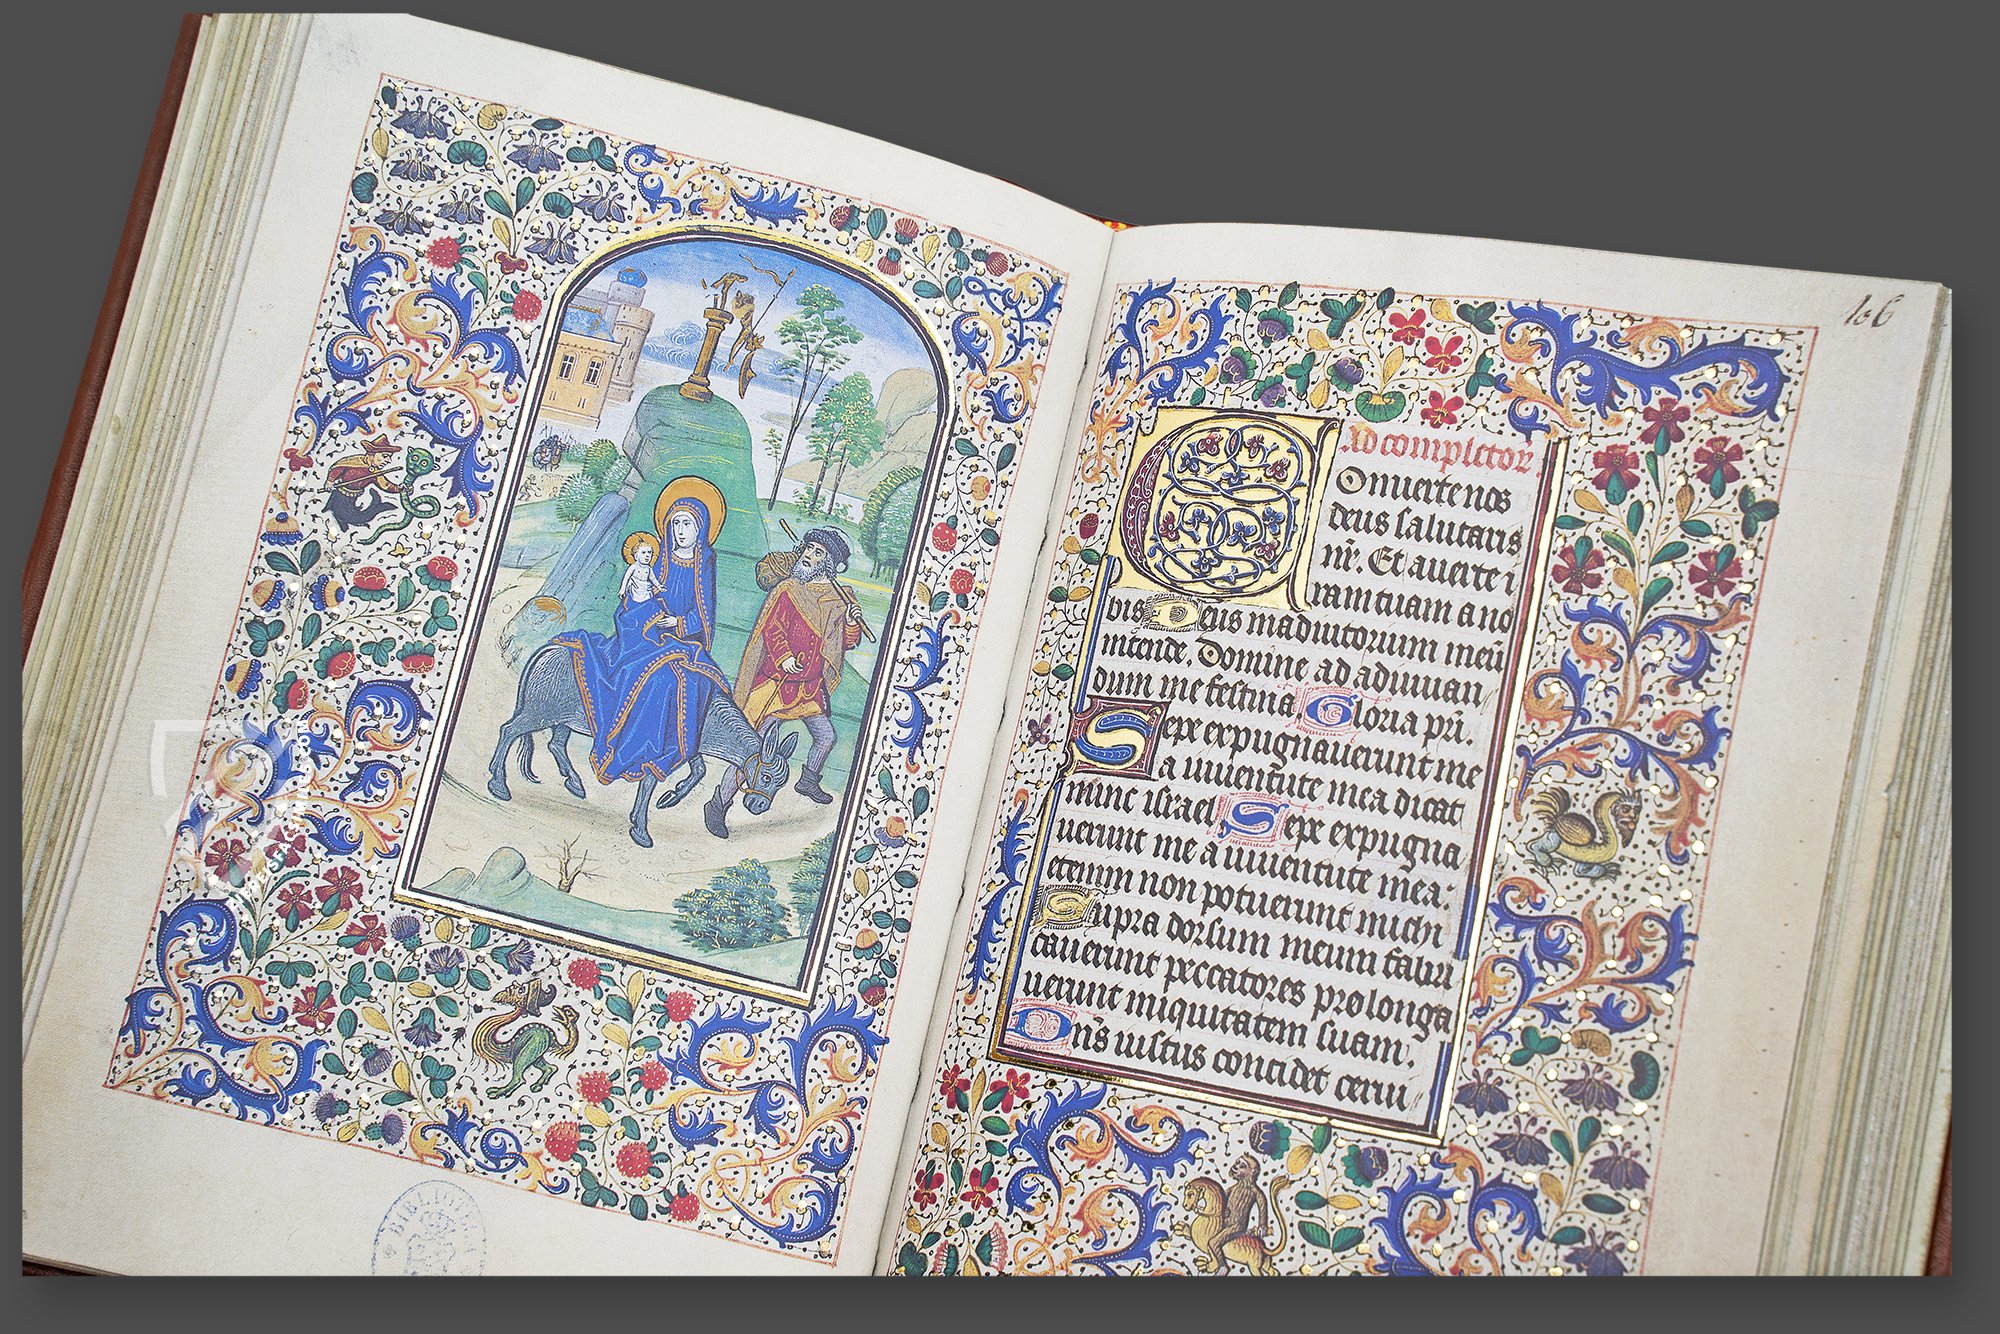 BIBLIOTECA
106
Ad completor
Conuerte nos
deus salutaris
nr̄. Et auerte i
ram tuam a no
bis Deus in adiutorium meū
intende. Domine ad adiuuan
dum me festina Gloria pr̄i.
Sepe expugnauerunt me
a iuuentute mea dicat
nunc israel Sepe expugna
uerunt me a iuuentute mea:
etenim non potuerunt michi
Supra dorsum meum fabri
cauerunt peccatores prolonga
uerunt iniquitatem suam.
Dn̄s iustus concidet cerui